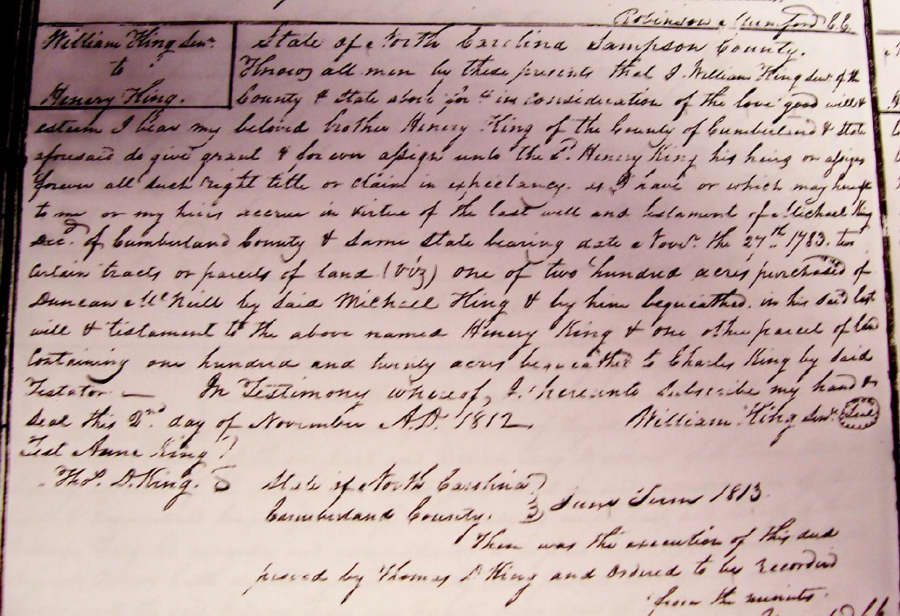 Robinson Mumford C.C.
William King Senr.
to
Henery King.
State of North Carolina Sampson County.
Know all men by these presents that I William King Senr of the
County & State above for in consideration of the love good will &
esteem I bear my beloved brother Henery King of the County of Cumberland & State
aforesaid do give grant & forever assign unto the Sd. Henery King his heirs or assigns
forever all such right title or claim in expectancy. as I have or which may hereaft
to me or my heirs accrue in virtue of the last will and testament of Michael King
Decd. of Cumberland County & Same State bearing date Novr. the 27th 1783. two
Certain tracts or parcels of land (viz) one of two hundred acres purchased of
Duncan McNeill by Said Michael King & by him bequeathed. in his Said last
will & testament to the above named Henery King & one other parcel of land
Containing one hundred and twenty acres bequeathed to Charles King by Said
Testator — In Testimony whereof, I hereunto Subscribe my hand &
Seal this 2nd day of November A.D. 1812 William King Senr. Seal
Test Anne King
Thos. D. King.
State of North Carolina
Cumberland County. June Term 1813.
Then was the execution of this deed
proved by Thomas D King and Ordered to be Recorded
from the minutes.